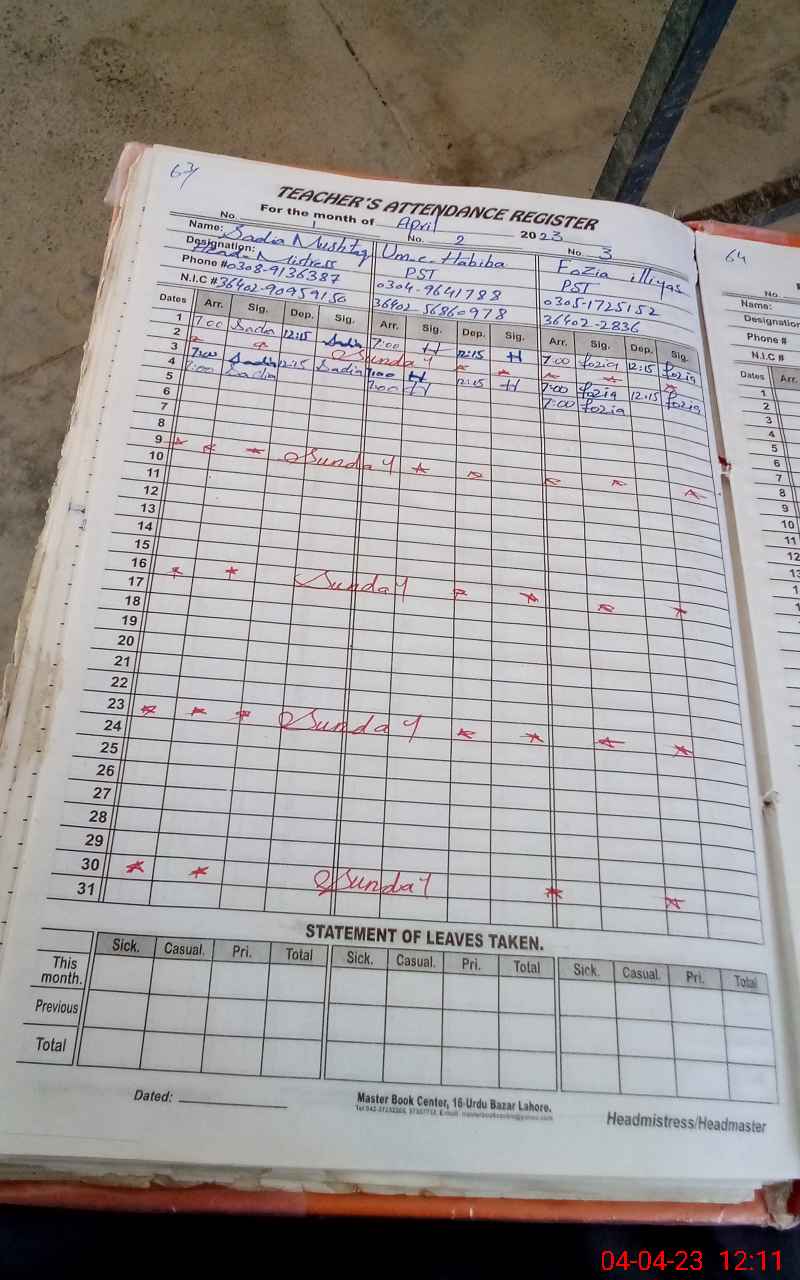 67
TEACHER'S ATTENDANCE REGISTER
For the month of April 2023
No. 1 No. 2 No. 3
Name: Sadia Mushtaq Um-e-Habiba Fozia illiyas
Designation: Head Mistress PST PST
Phone # 0308-9136387 0304-9641788 0305-1725152
N.I.C # 36402-9095915 36402-56860978 36402-2836
Dates Arr. Sig. Dep. Sig. Arr. Sig. Dep. Sig. Arr. Sig. Dep. Sig.
1 7:00 Sadia 12:15 Sadia 7:00 H 12:15 H 7:00 fozia 12:15 fozia
2 Sunday
3 7:00 Sadia 12:15 Sadia 7:00 H 12:15 H 7:00 fozia 12:15 fozia
4 7:00 Sadia 7:00 H 7:00 fozia
5
6
7
8
9 Sunday
10
11
12
13
14
15
16 Sunday
17
18
19
20
21
22
23 Sunday
24
25
26
27
28
29
30 Sunday
31
STATEMENT OF LEAVES TAKEN.
Sick. Casual. Pri. Total Sick. Casual. Pri. Total Sick. Casual. Pri. Total
This month.
Previous
Total
Dated:
Master Book Center, 16-Urdu Bazar Lahore.
Headmistress/Headmaster
64
No.
Name:
Designation
Phone #
N.I.C #
Dates Arr.
1
2
3
4
5
6
7
8
9
10
11
12
04-04-23 12:11